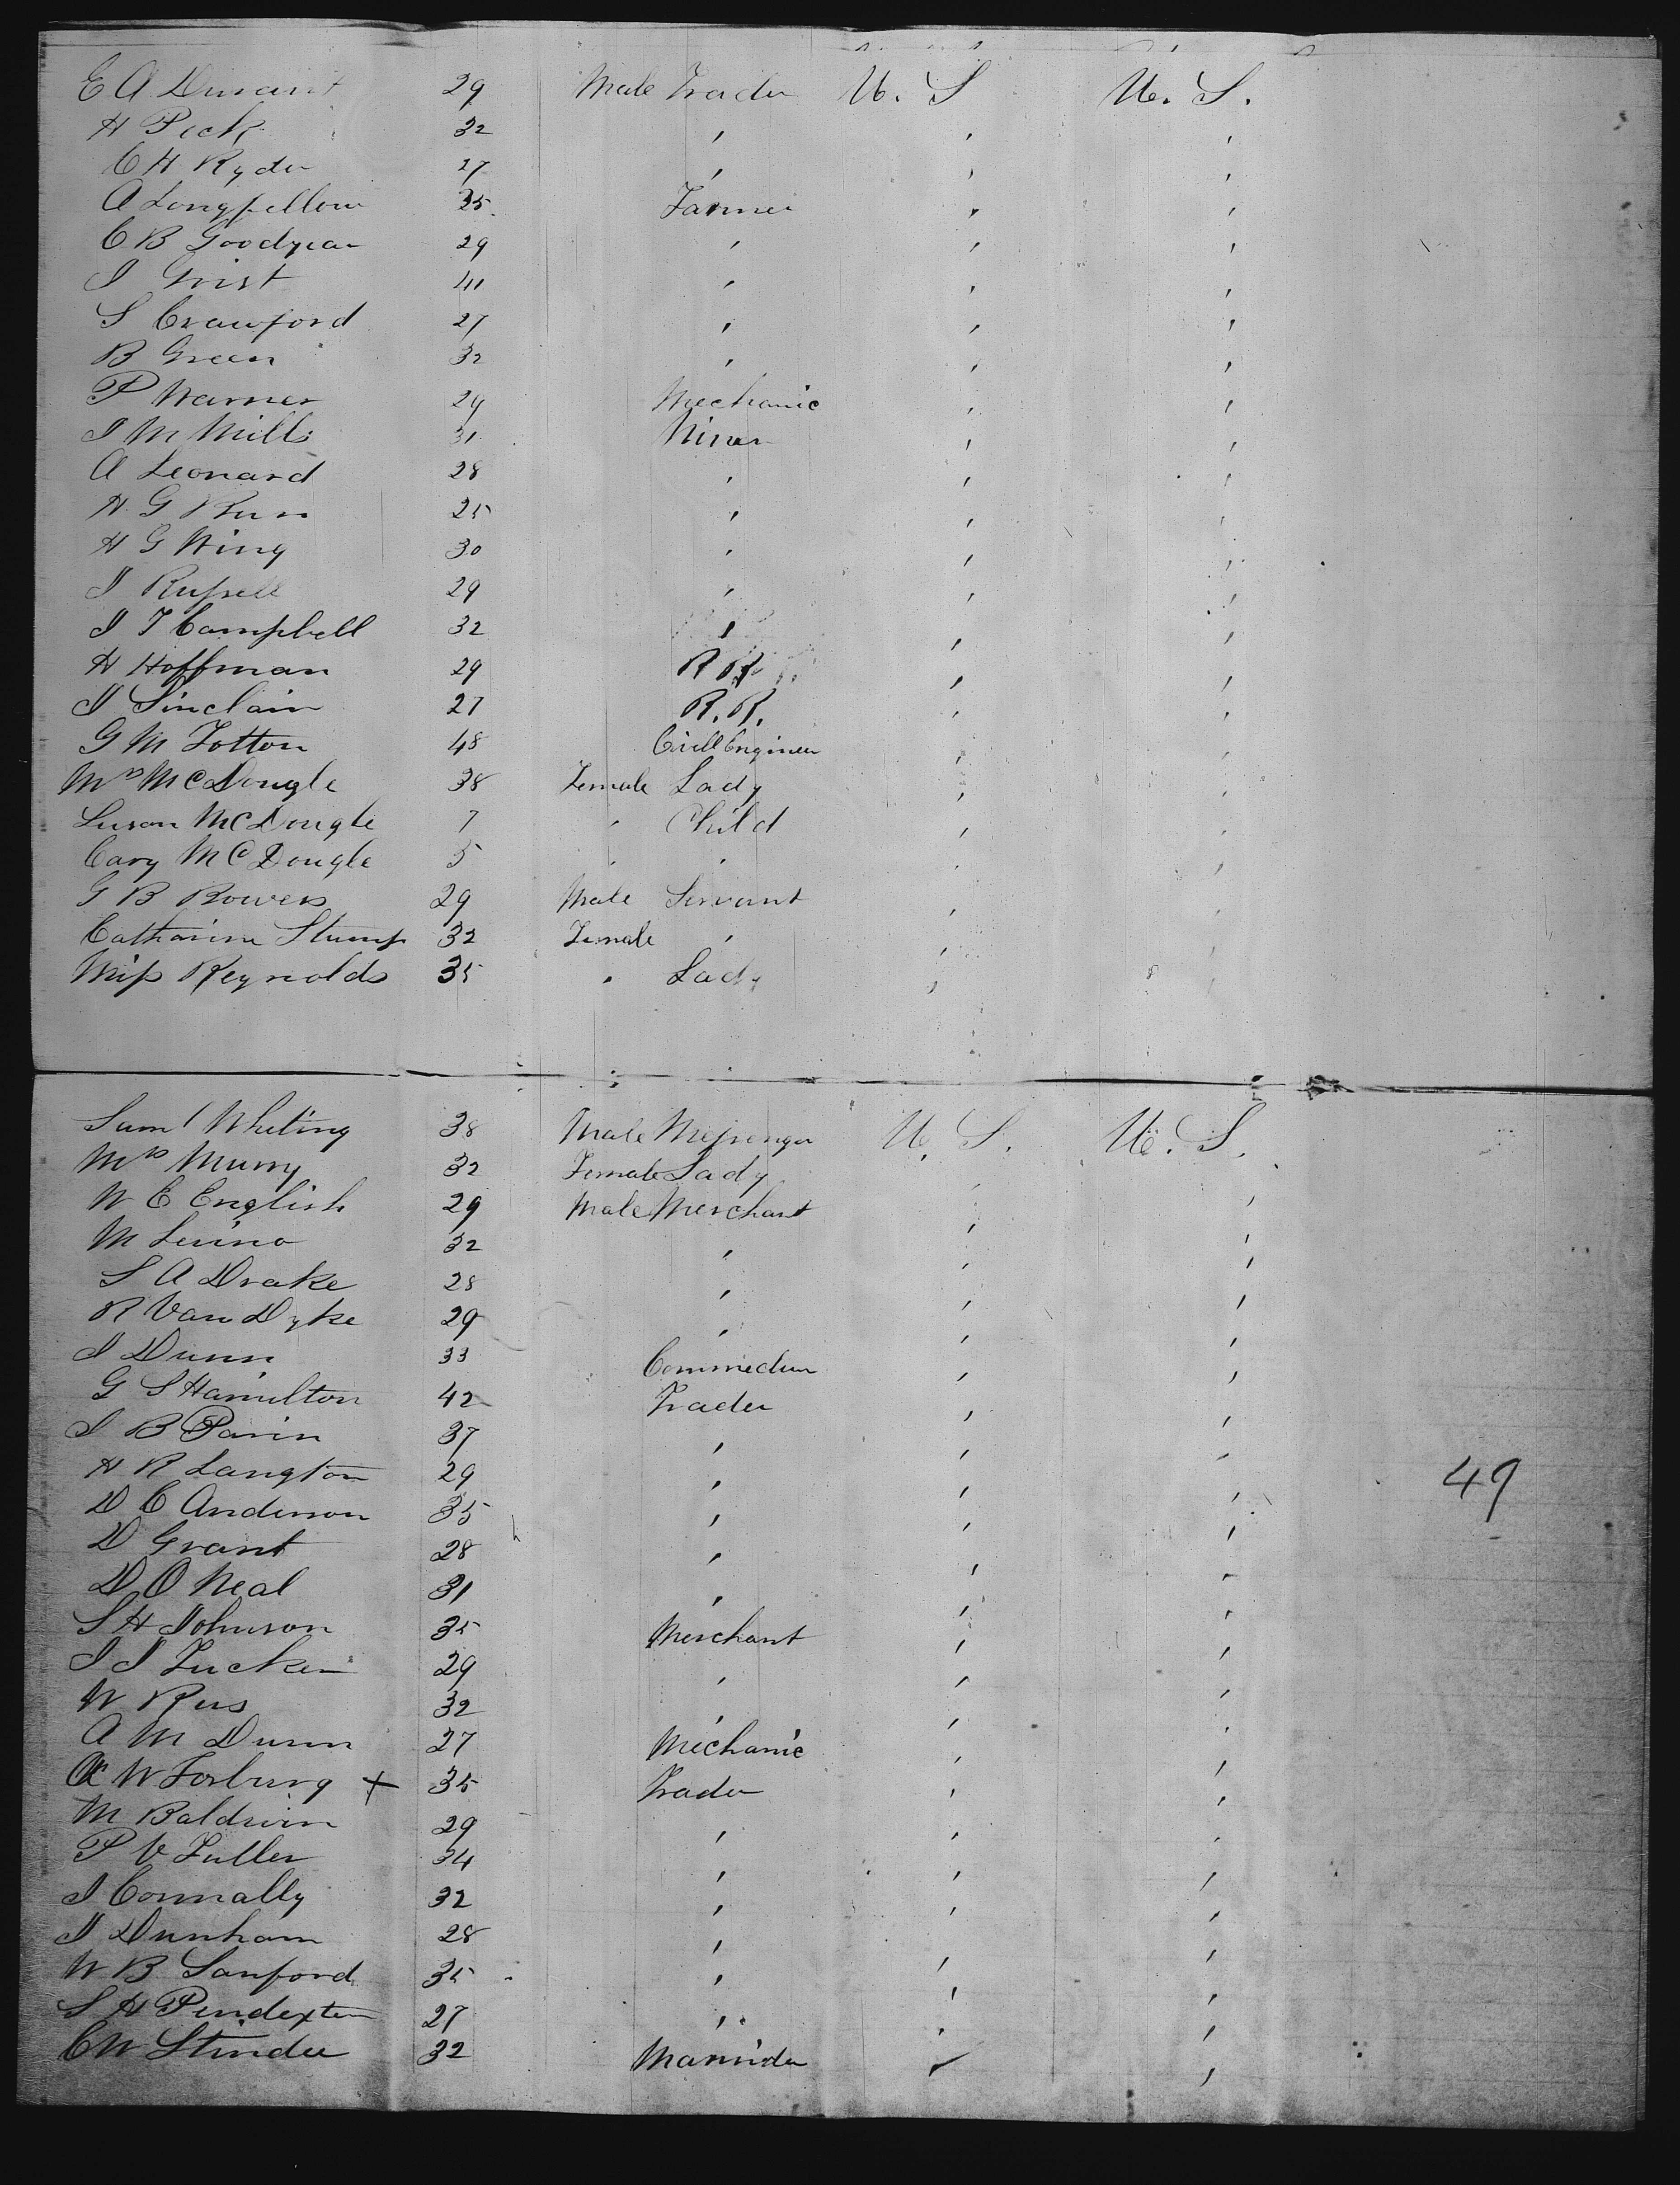 E A Durant 29 Male Trader U. S U. S.
H Peck 32 " " "
C H Ryder 27 " " "
A Longfellow 25 Farmer " "
C B Goodyear 29 " " "
J Grist 41 " " "
S Crawford 27 " " "
B Green 32 " " "
P Warner 29 Mechanic " "
J M Mills 31 Miner " "
A Leonard 28 " " "
H G 25 " " "
H G Wing 30 " " "
J Russell 29 " " "
J T Campbell 32 " " "
H Hoffman 29 R R " "
J Sinclair 27 R. R. " "
G M Totton 48 Civill Engineer " "
Mrs McDougle 38 Female Lady " "
Susan McDougle 7 " Child " "
Cary McDougle 5 " " " "
G B Bowers 29 Male Servant " "
Catharine Stump 32 Female " " "
Miss Reynolds 35 " Lady " "
Saml Whiting 38 Male Messenger U. S. U. S.
Mrs Murry 32 Female Lady " "
W E English 29 Male Merchant " "
M 32 " " "
S A Drake 28 " " "
R Van Dyke 29 " " "
J Dunn 33 Commedian " "
G S Hamilton 42 Trader " "
J B 37 " " "
H R Langton 29 " " "
D C Anderson 35 " " "
49
D Grant 28 " " "
D O Neal 31 " " "
S H Johnson 35 Merchant " "
J J Tucker 29 " " "
W 32 " " "
A M Dunn 27 Mechanic " "
W Forburg + 35 Trader " "
M Baldwin 29 " " "
P V Fuller 34 " " "
J Connally 32 " " "
J Dunham 28 " " "
W B Sanford 35 " " "
S H Pindexter 27 " " "
C W 32 " "